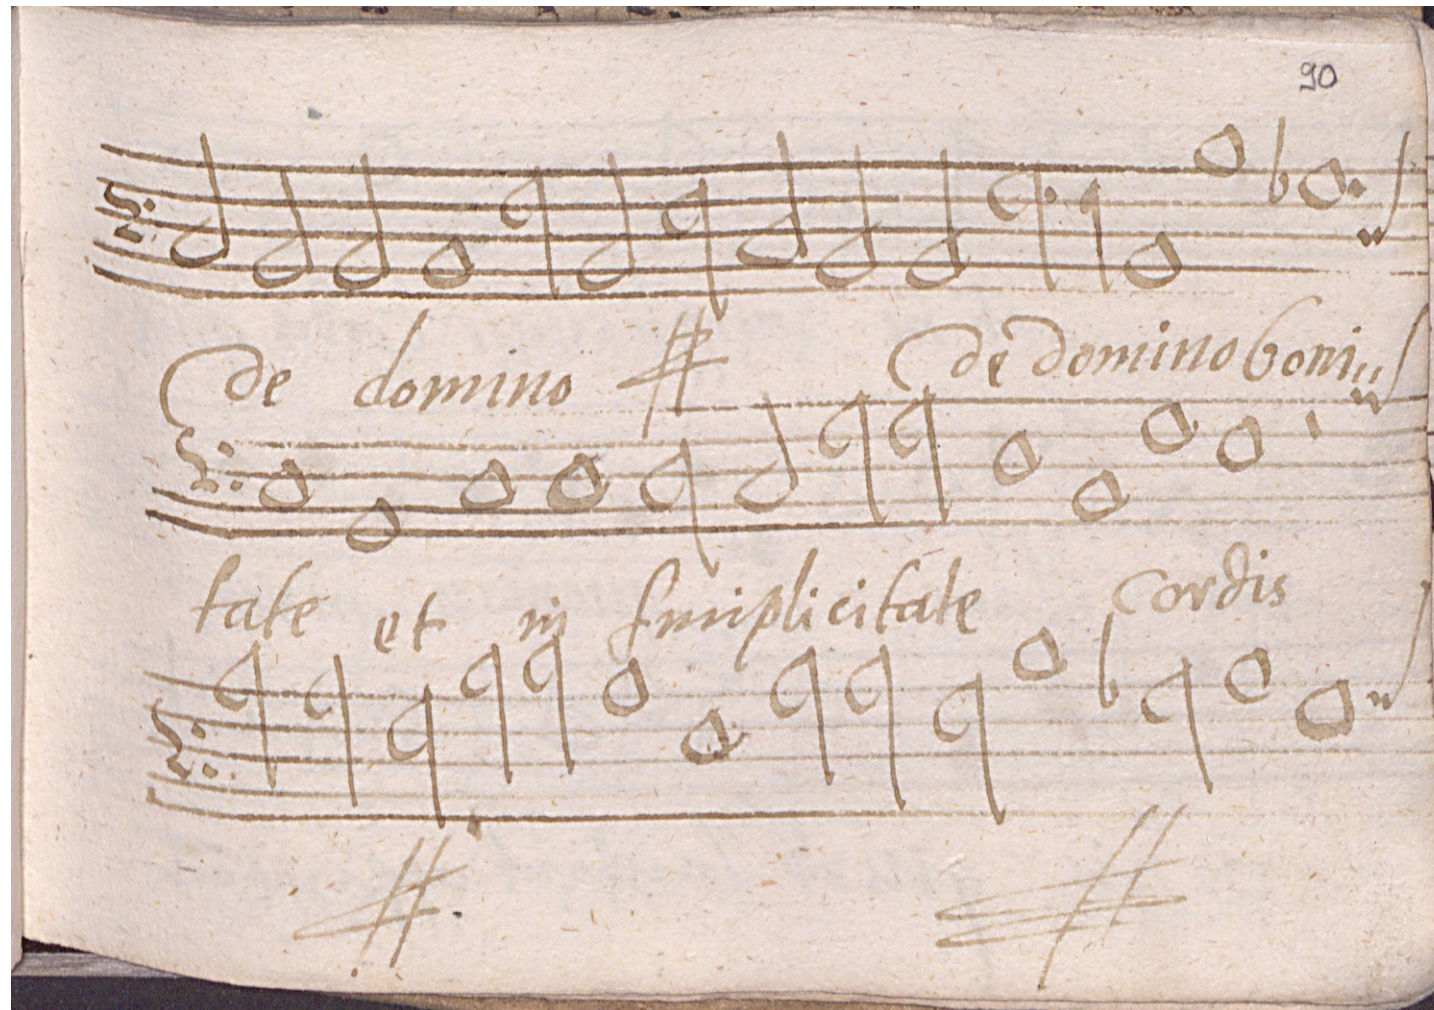 90
de domino de domino boni
tate et in simplicitate cordis